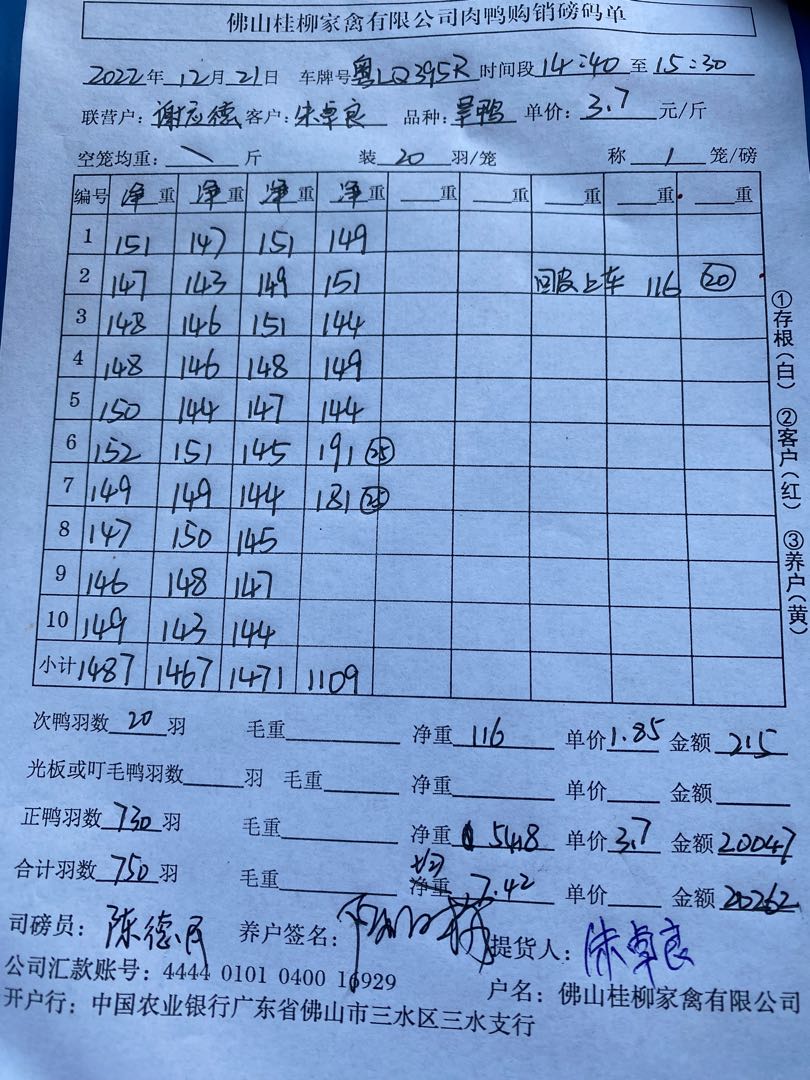 佛山桂柳家禽有限公司肉鸭购销磅码单
2022年12月21日 车牌号粤LQ395R时间段14:40至15:30
联营户:谢应德 客户:朱卓良 品种:呈鸭 单价:3.7元/斤
空笼均重:\斤 装20羽/笼 称1笼/磅
编号 净重 净重 净重 净重 重 重 重 重 重
1 151 147 151 149
2 147 143 149 151 回皮上车 116 20
3 148 146 151 144
4 148 146 148 149
5 150 144 147 144
6 152 151 145 191 25
7 149 149 144 181 25
8 147 150 145
9 146 148 147
10 149 143 144
小计 1487 1467 1471 1109
次鸭羽数20羽 毛重 净重116 单价1.85 金额215
光板或叮毛鸭羽数 羽 毛重 净重 单价 金额
正鸭羽数730羽 毛重 净重5418 单价3.7 金额20047
合计羽数750羽 毛重 净重7.42 单价 金额20262
司磅员:陈德民 养户签名: 提货人:朱卓良
公司汇款账号:4444 0101 0400 16929 户名:佛山桂柳家禽有限公司
开户行:中国农业银行广东省佛山市三水区三水支行
①存根(白) ②客户(红) ③养户(黄)